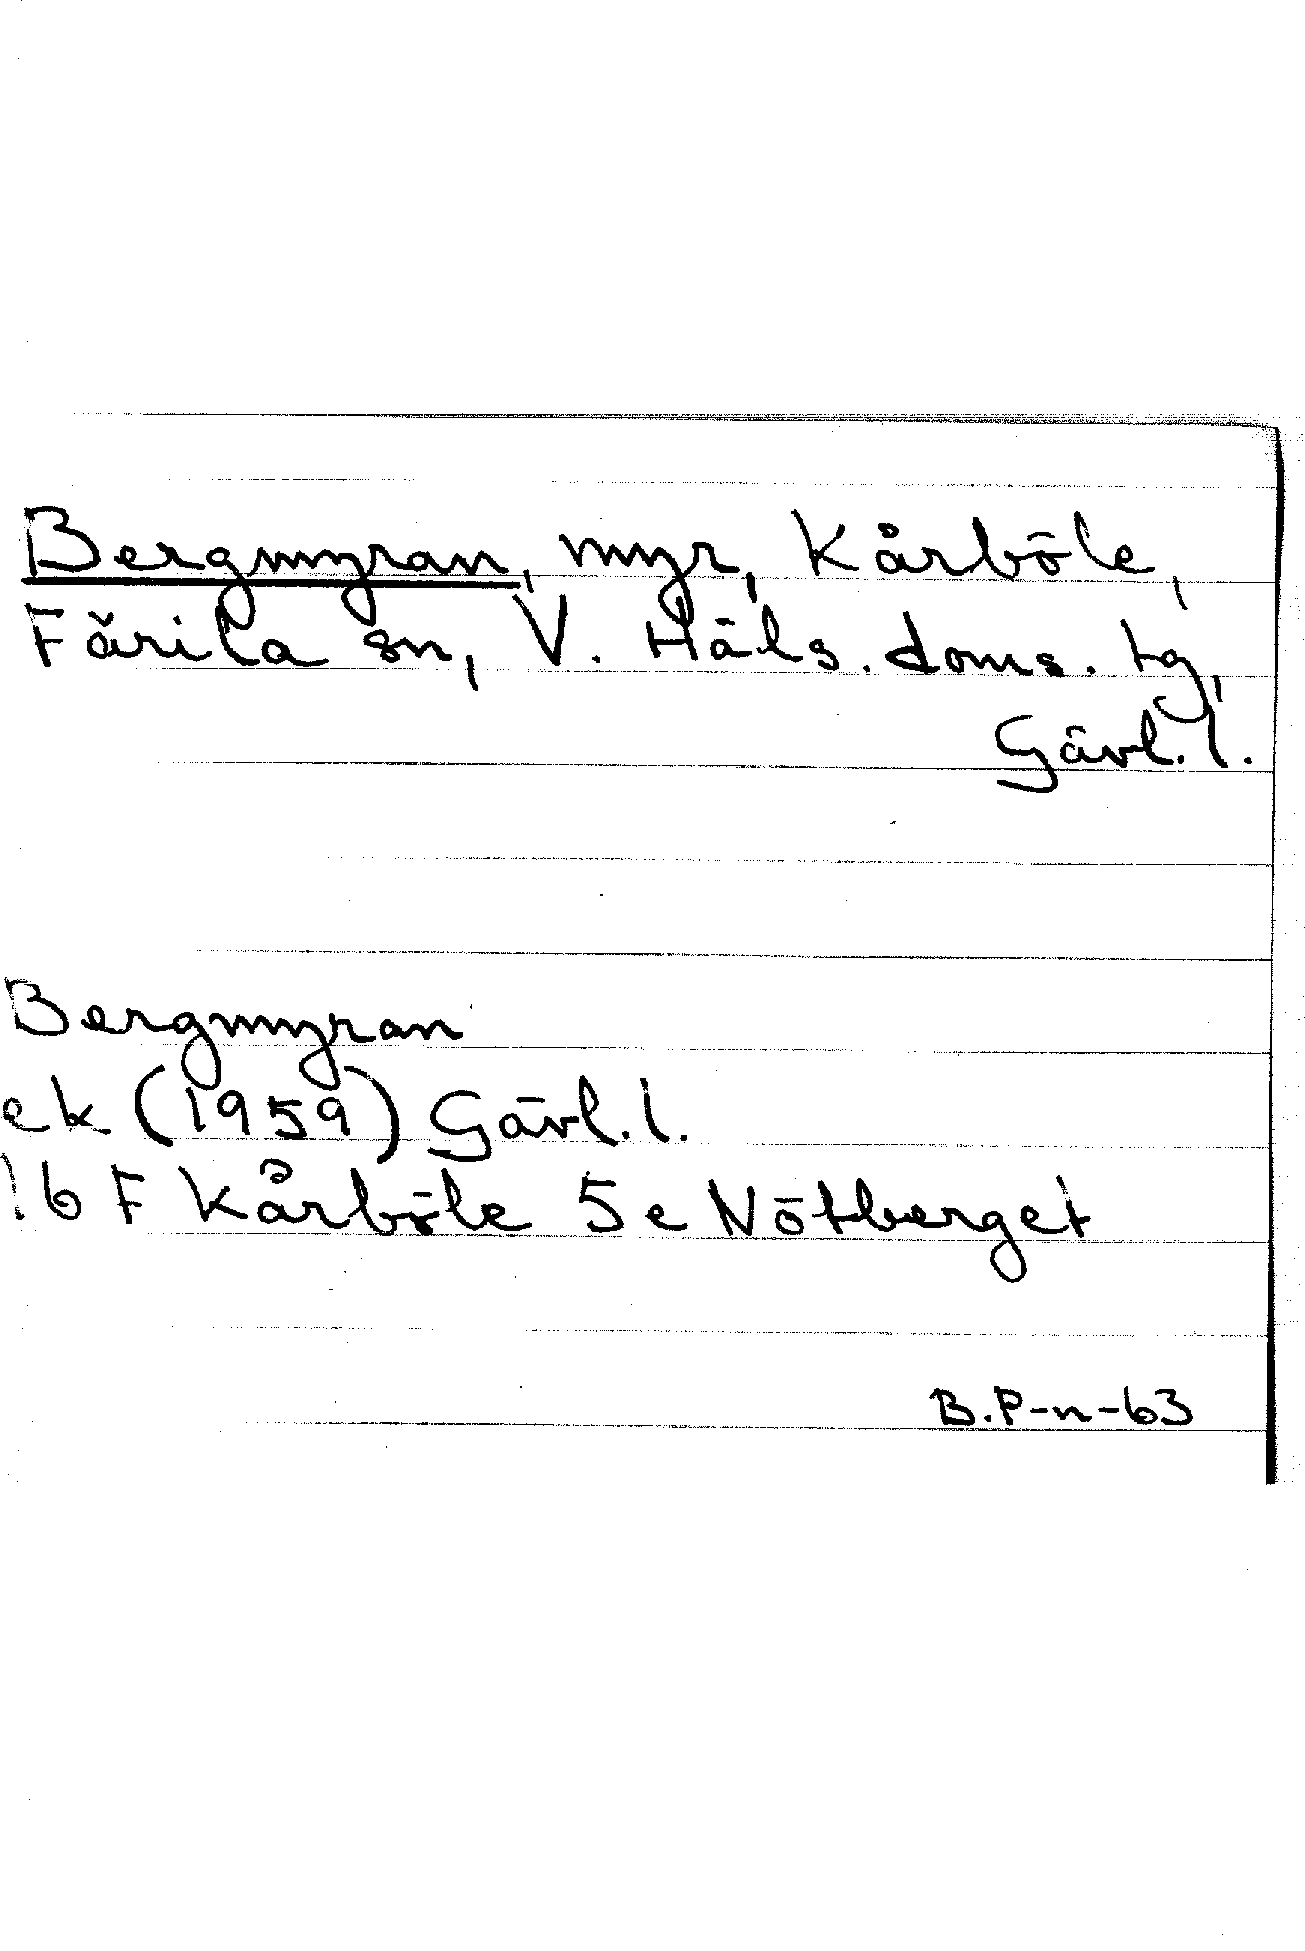 Bergmyran, myr, Kårböle,
Färila sn, V. Häls. doms. tg,
Gävl. l.
Bergmyran
ek (1959) Gävl. l.
16 F Kårböle 5e Nötberget
B.P-n-63